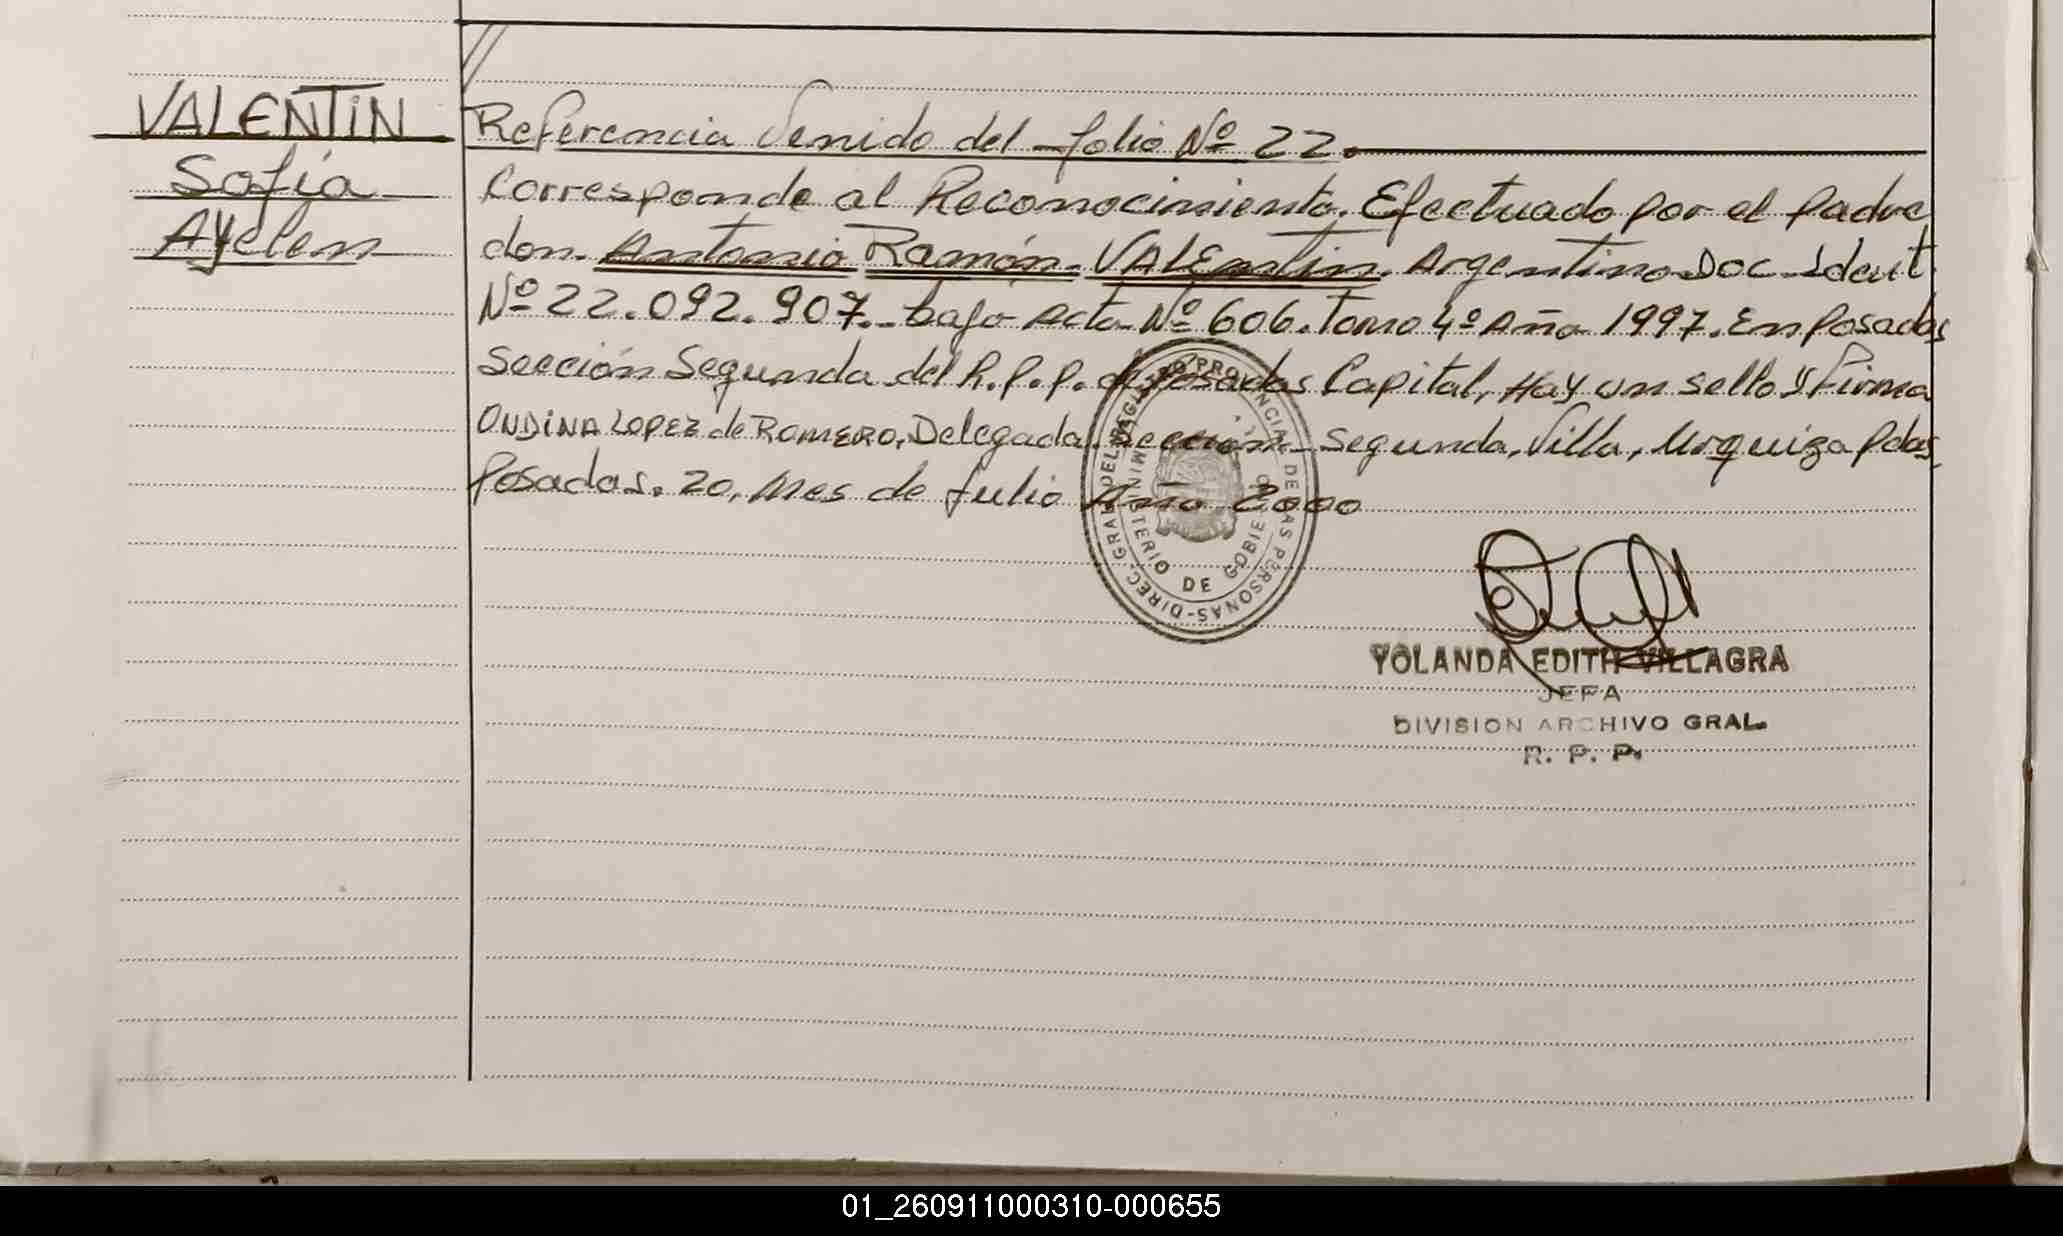 VALENTIN
Sofía
Ayelen
Referencia Venido del folio Nº 22.
Corresponde al Reconocimiento. Efectuado por el Padre
don. Antonio Ramón. VALENtin. Argentino Doc. Ident.
Nº 22.092.907. bajo Acta Nº 606. Tomo 4º Año 1997. En Posadas
Sección Segunda del R.P.P. de Posadas Capital, Hay un sello y Firma
ONDINA LOPEZ de ROMERO, Delegada. Sección Segunda, Villa, Urquiza Pdas,
Posadas. 20, Mes de Julio Año 2000
MINISTERIO DE GOBIERNO
YOLANDA EDITH VILLAGRA
JEFA
DIVISION ARCHIVO GRAL.
R. P. P.
01_260911000310-000655